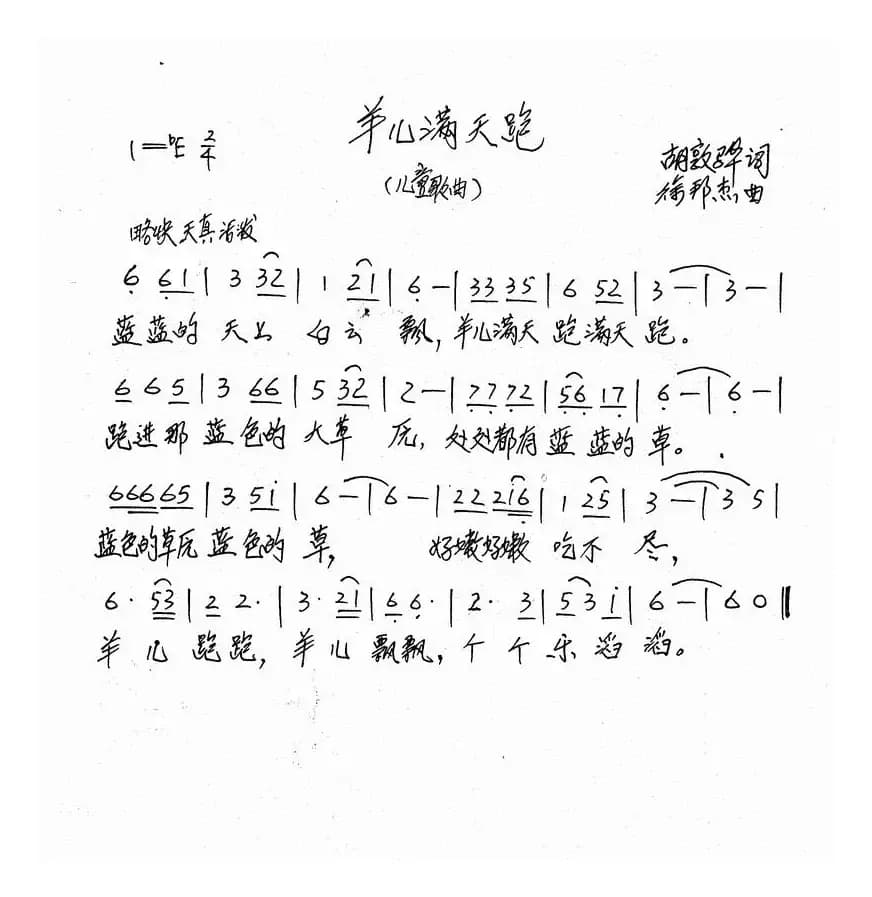 羊儿满天跑
1=bE 2/4
(儿童歌曲)
胡敦骅词
徐邦杰曲
略快 天真活泼
6 61 | 3 32 | 1 21 | 6 - | 33 35 | 6 52 | 3 - | 3 - |
蓝蓝的 天上 白云 飘,羊儿满天 跑满天 跑。
6 6 5 | 3 66 | 5 32 | 2 - | 77 72 | 56 17 | 6 - | 6 - |
跑进那 蓝色的 大草 原, 处处都有 蓝 蓝的 草。
666 65 | 3 5i | 6 - | 6 - | 22 2i6 | 1 25 | 3 - | 3 5 |
蓝色的草原 蓝色的 草, 好嫩好嫩 吃不 尽,
6· 53 | 2 2· | 3· 21 | 6 6· | 2· 3 | 5 3 i | 6 - | 6 0 ‖
羊 儿 跑跑, 羊 儿 飘飘, 个 个 乐 滔 滔。